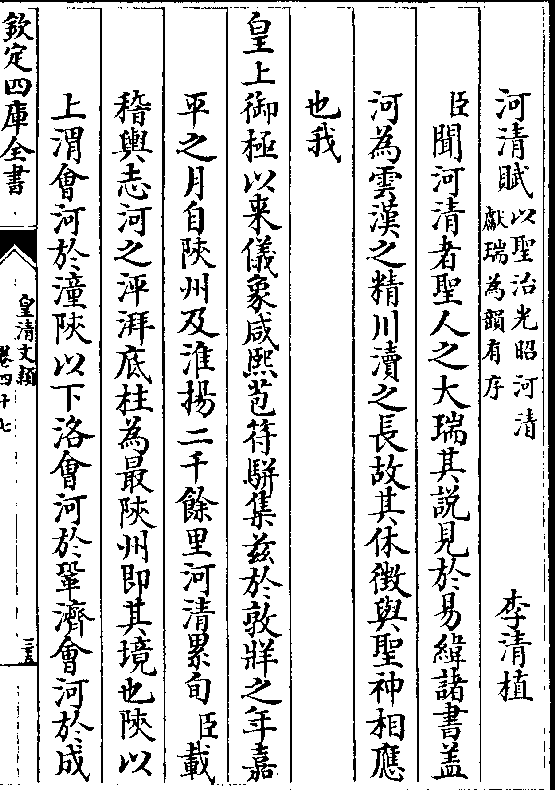 河清賦以聖治光昭河清獻瑞為韻有序　李清植
臣聞河清者聖人之大瑞其説見於易緯諸書盖
河為雲漢之精川瀆之長故其休徴與聖神相應
也我
皇上御極以来儀象咸熙苞符駢集兹於敦牂之年嘉
平之月自陜州及淮揚二千餘里河清累旬臣載
稽輿志河之泙湃底柱為最陜州即其境也陜以
上渭會河於潼陜以下洛會河於鞏濟會河於成
欽定四庫全書
皇清文穎
卷四十七
三五